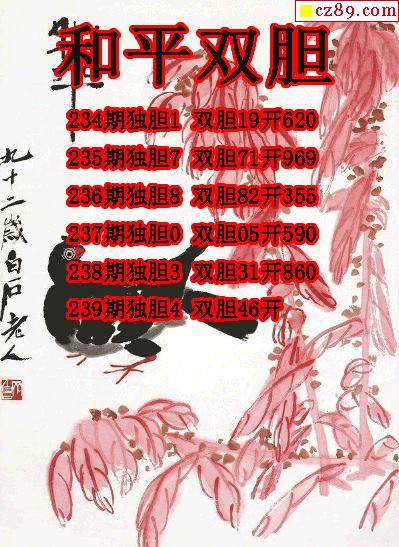 cz89.com
和平双胆
234期独胆1 双胆19开620
235期独胆7 双胆71开969
236期独胆8 双胆82开355
237期独胆0 双胆05开590
238期独胆3 双胆31开860
239期独胆4 双胆46开
九十二岁白石老人